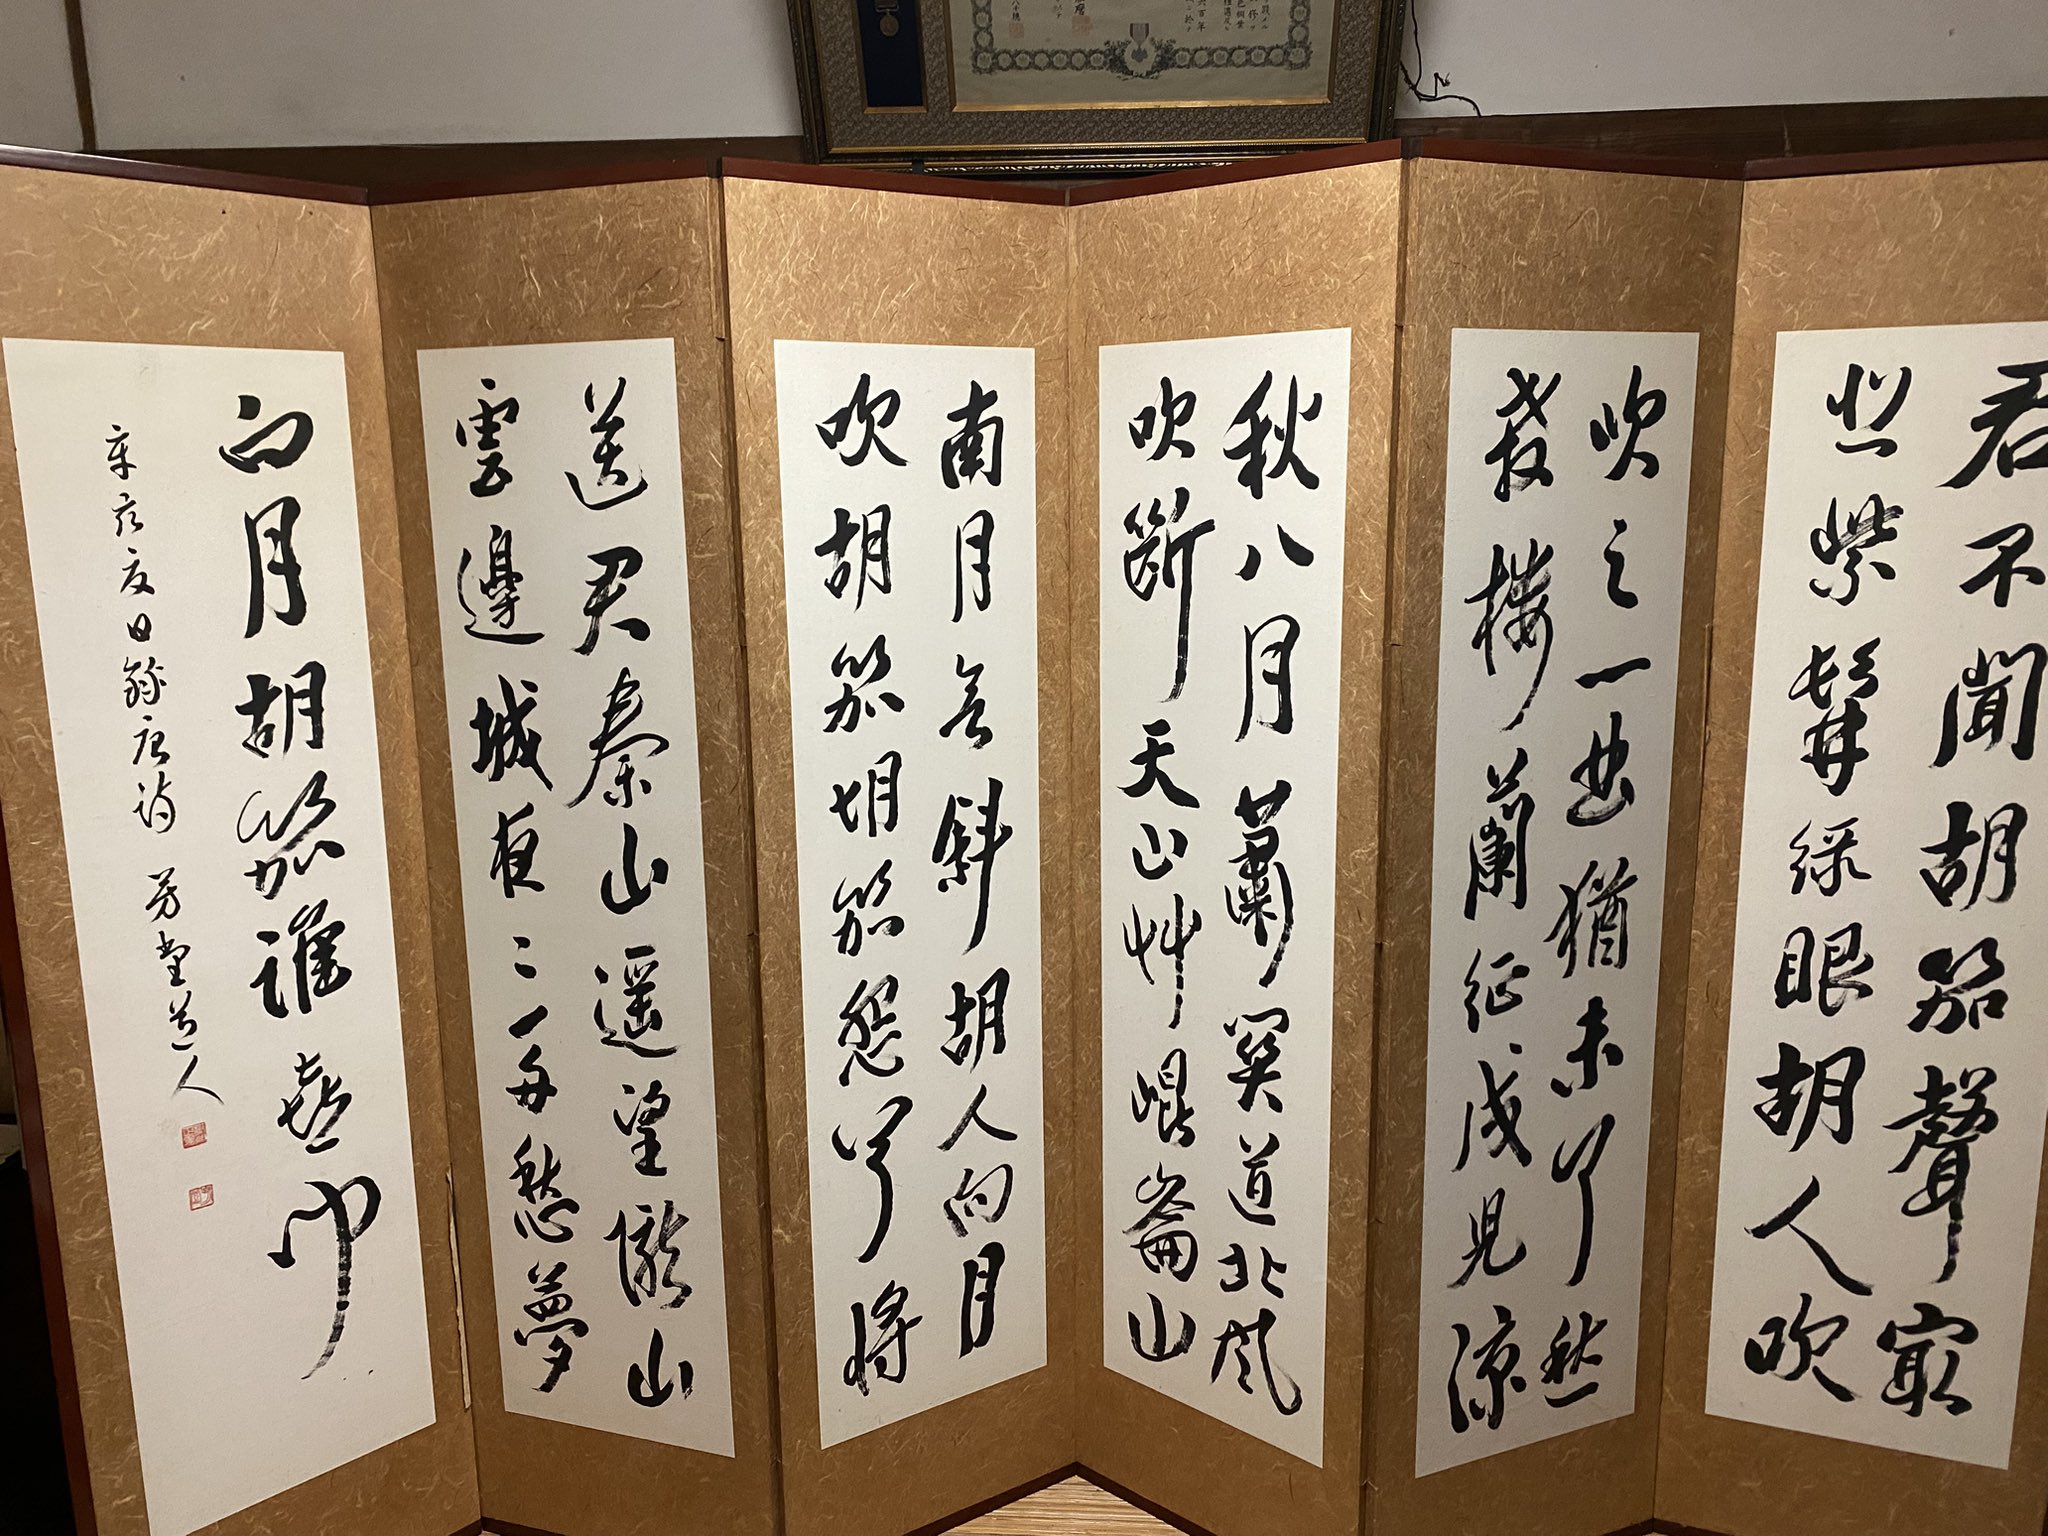 君不聞胡笳聲最
悲紫髯緑眼胡人吹
吹之一曲猶未了愁
殺樓蘭征戍兒涼
秋八月蕭関道北風
吹斷天山艸崐崙山
南月欲斜胡人向月
吹胡笳胡笳怨兮将
送君秦山遥望隴山
雲邊城夜〻多愁夢
向月胡笳誰喜聞
辛亥夏日録唐詩 芳堂道人